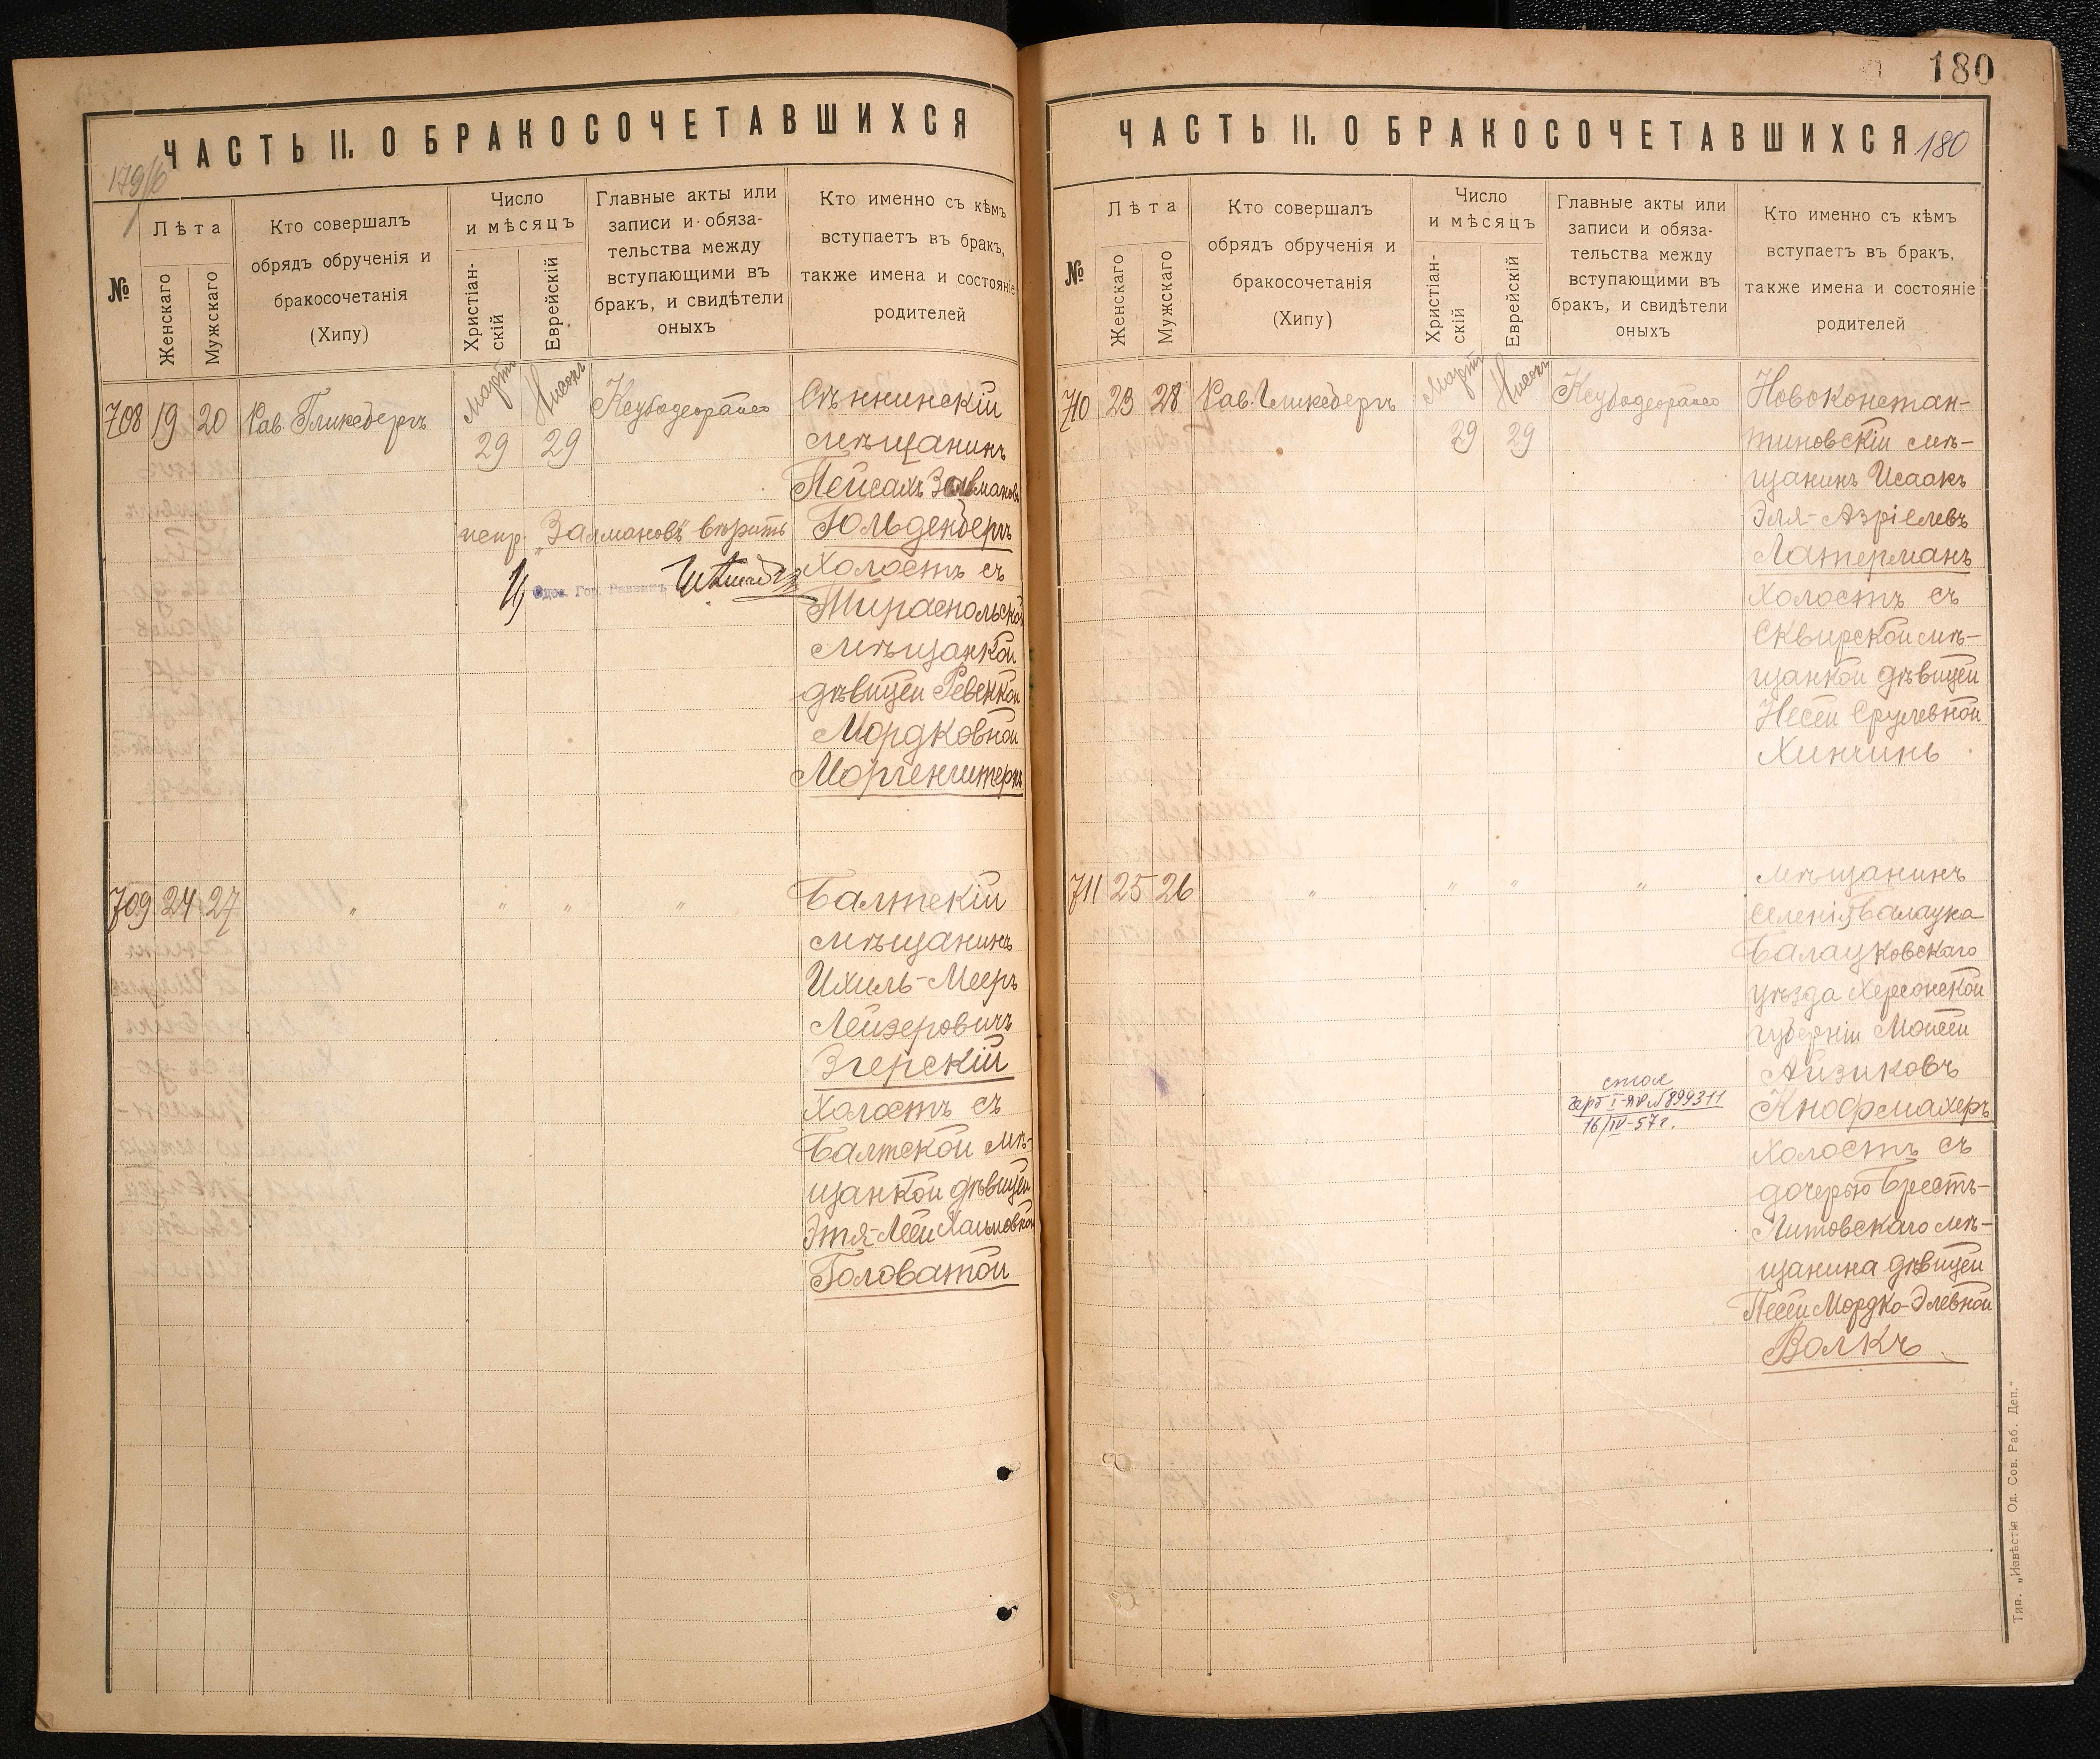 ЧАСТЬ II. О БРАКОСОЧЕТАВШИХСЯ
№
Лѣта
Женскаго
Мужскаго
Кто совершалъ
обрядъ обрученія и
бракосочетанія
(Хипу)
Число
и мѣсяцъ
Христіан-
скій
Еврейскій
Главные акты или
записи и обяза-
тельства между
вступающими въ
бракъ, и свидѣтели
оныхъ
Кто именно съ кѣмъ
вступаетъ въ бракъ,
также имена и состояніе
родителей
708 19 20 Рав. Гликсбергъ
Мартъ Нисонъ
29 29
Сѣннинскій
мѣщанинъ
Пейсахъ Залмановъ
испр. „Залмановъ" вѣрить Гольденбергъ
Одес. Гор. Раввинъ
Холостъ съ
Тираспольской
мѣщанкой
дѣвицей Ревеккой
Мордковной
Моргенштернъ
709 24 27 " " " "
Балтскій
мѣщанинъ
Ихиль-Мееръ
Лейзеровичъ
Згерскій
Холостъ съ
Балтской мѣ-
щанкой дѣвицей
Этя-Леей Хаимовной
Головатой
180
ЧАСТЬ II. О БРАКОСОЧЕТАВШИХСЯ 180
№
Лѣта
Женскаго
Мужскаго
Кто совершалъ
обрядъ обрученія и
бракосочетанія
(Хипу)
Число
и мѣсяцъ
Христіан-
скій
Еврейскій
Главные акты или
записи и обяза-
тельства между
вступающими въ
бракъ, и свидѣтели
оныхъ
Кто именно съ кѣмъ
вступаетъ въ бракъ,
также имена и состояніе
родителей
710 23 28 Рав. Гликсбергъ
Мартъ Нисонъ
29 29
Новоконстан-
тиновскій мѣ-
щанинъ Исаакъ
Эля-Азріелевъ
Латерманъ
Холостъ съ
Сквирской мѣ-
щанкой дѣвицей
Несей Срулевной
Хинчинъ
711 25 26 " " " "
мѣщанинъ
селенія Балацка
Балацковскаго
уѣзда Херсонской
губерніи Моисей
Айзиковъ
Кнофмахеръ
Холостъ съ
дочерью Брестъ-
Литовскаго мѣ-
щанина дѣвицей
Песей Мордко-Элевной
Волкъ
герб I-ЯР №899311
16/IV-57г.
Тип. „Извѣстія Од. Сов. Раб. Деп."